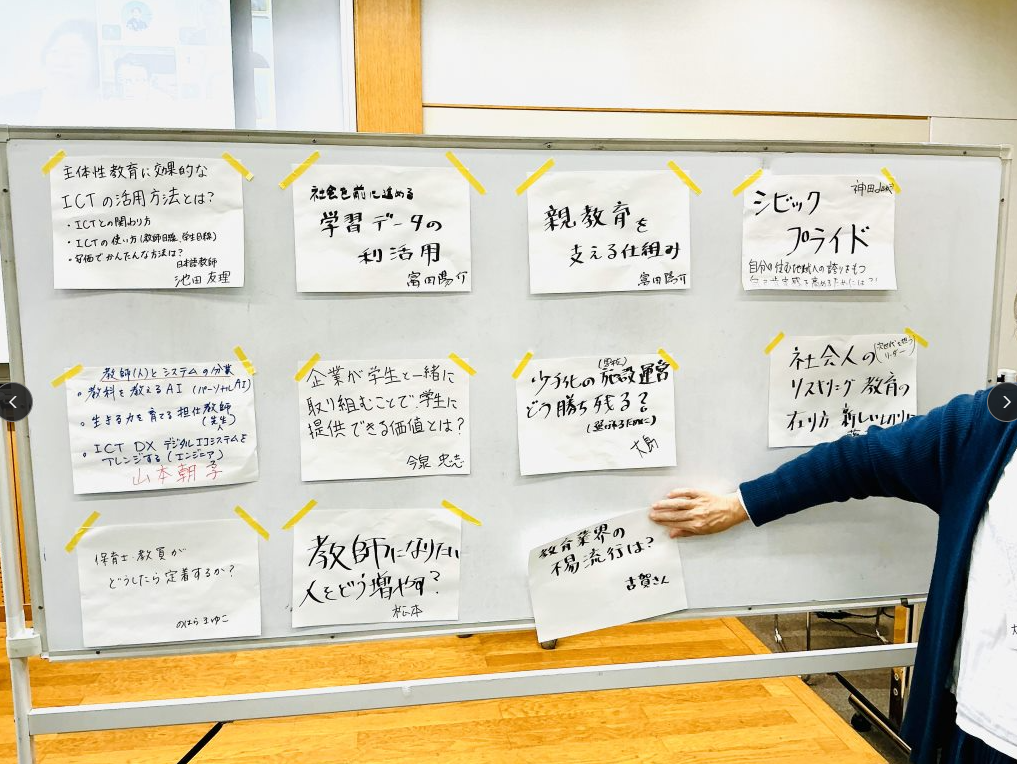 主体性教育に効果的な
ICTの活用方法とは?
・ICTとの関わり方
・ICTの使い方(教師目線、学生目線)
・安価でかんたんな方法は?
日本語教師
池田 友理
社会を前に進める
学習データの
利活用
富田陽介
親教育を
支える仕組み
富田陽介
神田
シビック
プライド
自分の住む地域への誇りをもつ
教師(人)とシステムの分業
・教科を教えるAI(パーソナルAI)
・生きる力を育てる担任教師
(先生)
・ICT DX デジタルエコシステムを
アレンジする(エンジニア)
山本朝子
企業が学生と一緒に
取り組むことで、学生に
提供できる価値とは?
今泉 忠志
少子化の施設運営
どう勝ち残る?
(選ばれるために)
大島
社会人の
(次世代を担う
リーダー)
リスキリング教育の
在り方 新しい
保育士・教員が
どうしたら定着するか?
のはら まゆこ
教師になりたい
人をどう増やす?
松本
教育業界の
不易流行は?
古賀さん